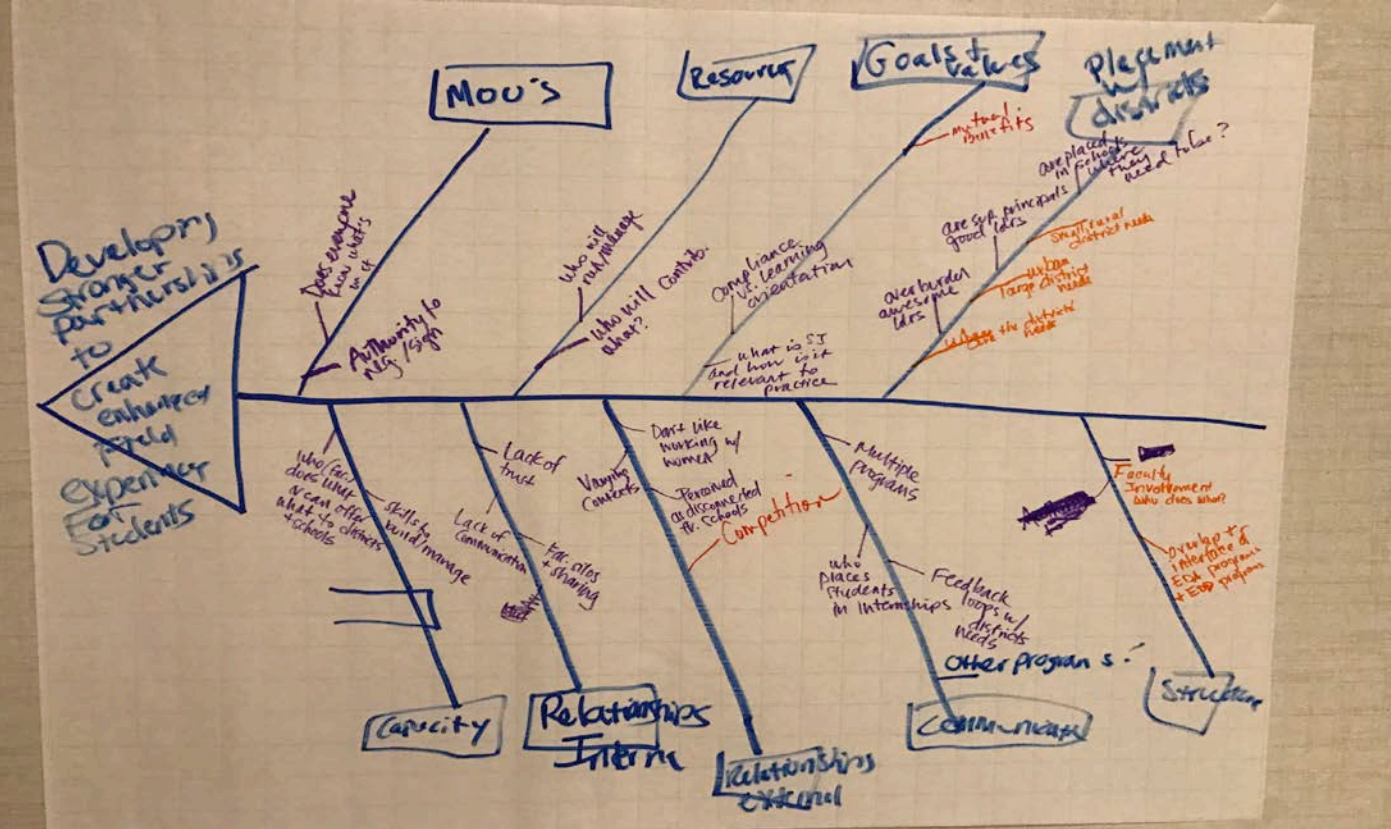 MOU's
Resource
Goals +
Values
Placement
w/
districts
Developing
Stronger
partnerships
to
Create
enhanced
field
experience
For
Students
Does everyone
know what's
in it
Authority to
neg./sign
who will
run/manage
who will contrib.
what?
mutual
benefits
compliance
vs. learning
orientation
what is SJ
and how is it
relevant to
practice
are placed
in schools
where
they
need to be?
are sup. principals
good ldrs
overburden
awesome
ldrs
small/rural
district needs
urban
large district
needs
the districts'
needs
who (fac.)
does what
can offer
what to districts
+ schools
skills to
build/manage
Capacity
Lack of
trust
Lack of
communication
Fac. silos
+ sharing
Relationships
Interna
Don't like
working w/
women
Varying
Contexts
Perceived
as disconnected
fr. schools
Competition
Relationships
external
Multiple
programs
who
places
students
in Internships
Feedback
loops w/
districts
needs
Other programs
Communicat
Faculty
Involvement
who does what?
overlap +
interface of
EDA programs
+ EDD program
Structure